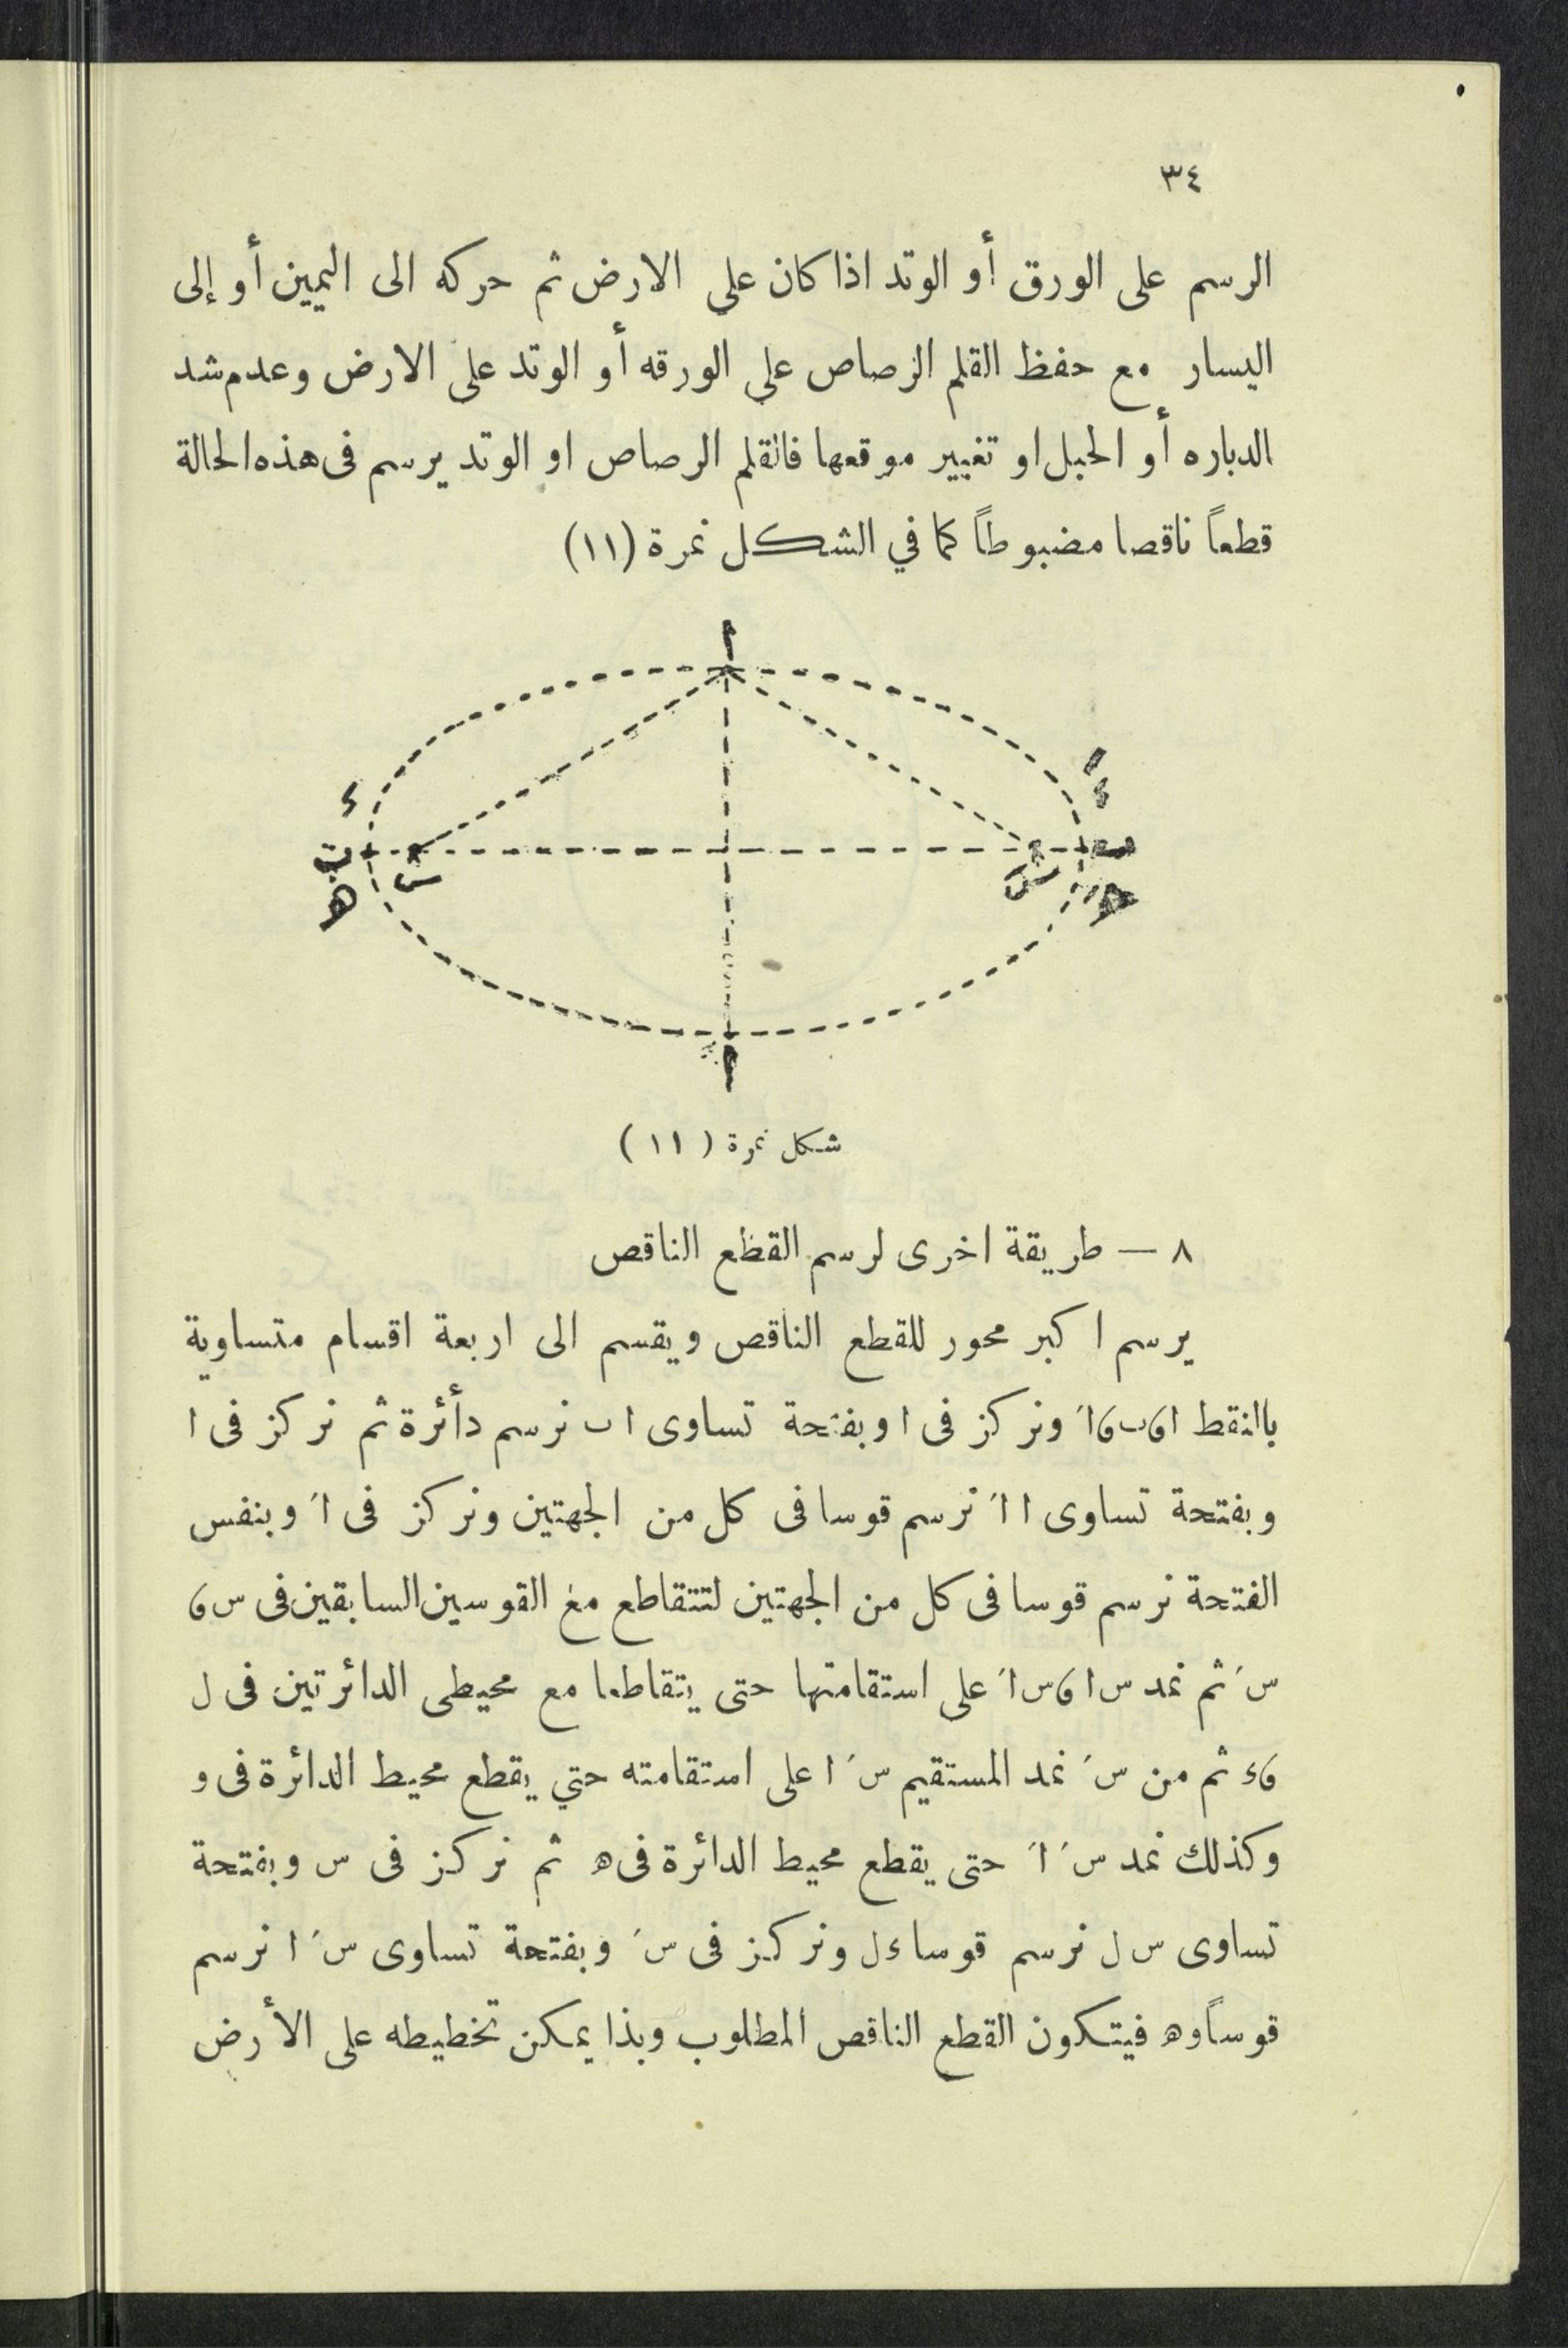 ٣٤
الرسم على الورق أو الوتد اذا كان على الارض ثم حركه الى اليمين أو إلى
اليسار مع حفظ القلم الرصاص على الورقه أو الوتد على الارض وعدم شد
الدباره أو الحبل او تغيير موقعها فالقلم الرصاص او الوتد يرسم فى هذه الحالة
قطعاً ناقصا مضبوطاً كما في الشكل نمرة (١١)
شكل نمرة ( ١١ )
٨ — طريقة اخرى لرسم القطع الناقص
يرسم اكبر محور للقطع الناقص ويقسم الى اربعة اقسام متساوية
بالنقط ا ؍ ب ؍ اَ ونركز فى ا وبفتحة تساوى ا ب نرسم دأئرة ثم نركز فى ا
وبفتحة تساوى ا اَ نرسم قوسا فى كل من الجهتين ونركز فى اَ وبنفس
الفتحة نرسم قوسا فى كل من الجهتين لتتقاطع مع القوسين السابقين فى س ؍
سَ ثم نمد س ا ؍ س اَ على استقامتها حتى يتقاطعا مع محيطى الدائرتين فى ل
؍ ء ثم من سَ نمد المستقيم سَ ا على استقامته حتي يقطع محيط الدائرة فى و
وكذلك نمد سَ اَ حتى يقطع محيط الدائرة فى ه ثم نركز فى س وبفتحة
تساوى س ل نرسم قوسا ء ل ونركز فى سَ وبفتحة تساوى سَ ا نرسم
قوساً و ه فيتكون القطع الناقص المطلوب وبذا يمكن تخطيطه على الأرض